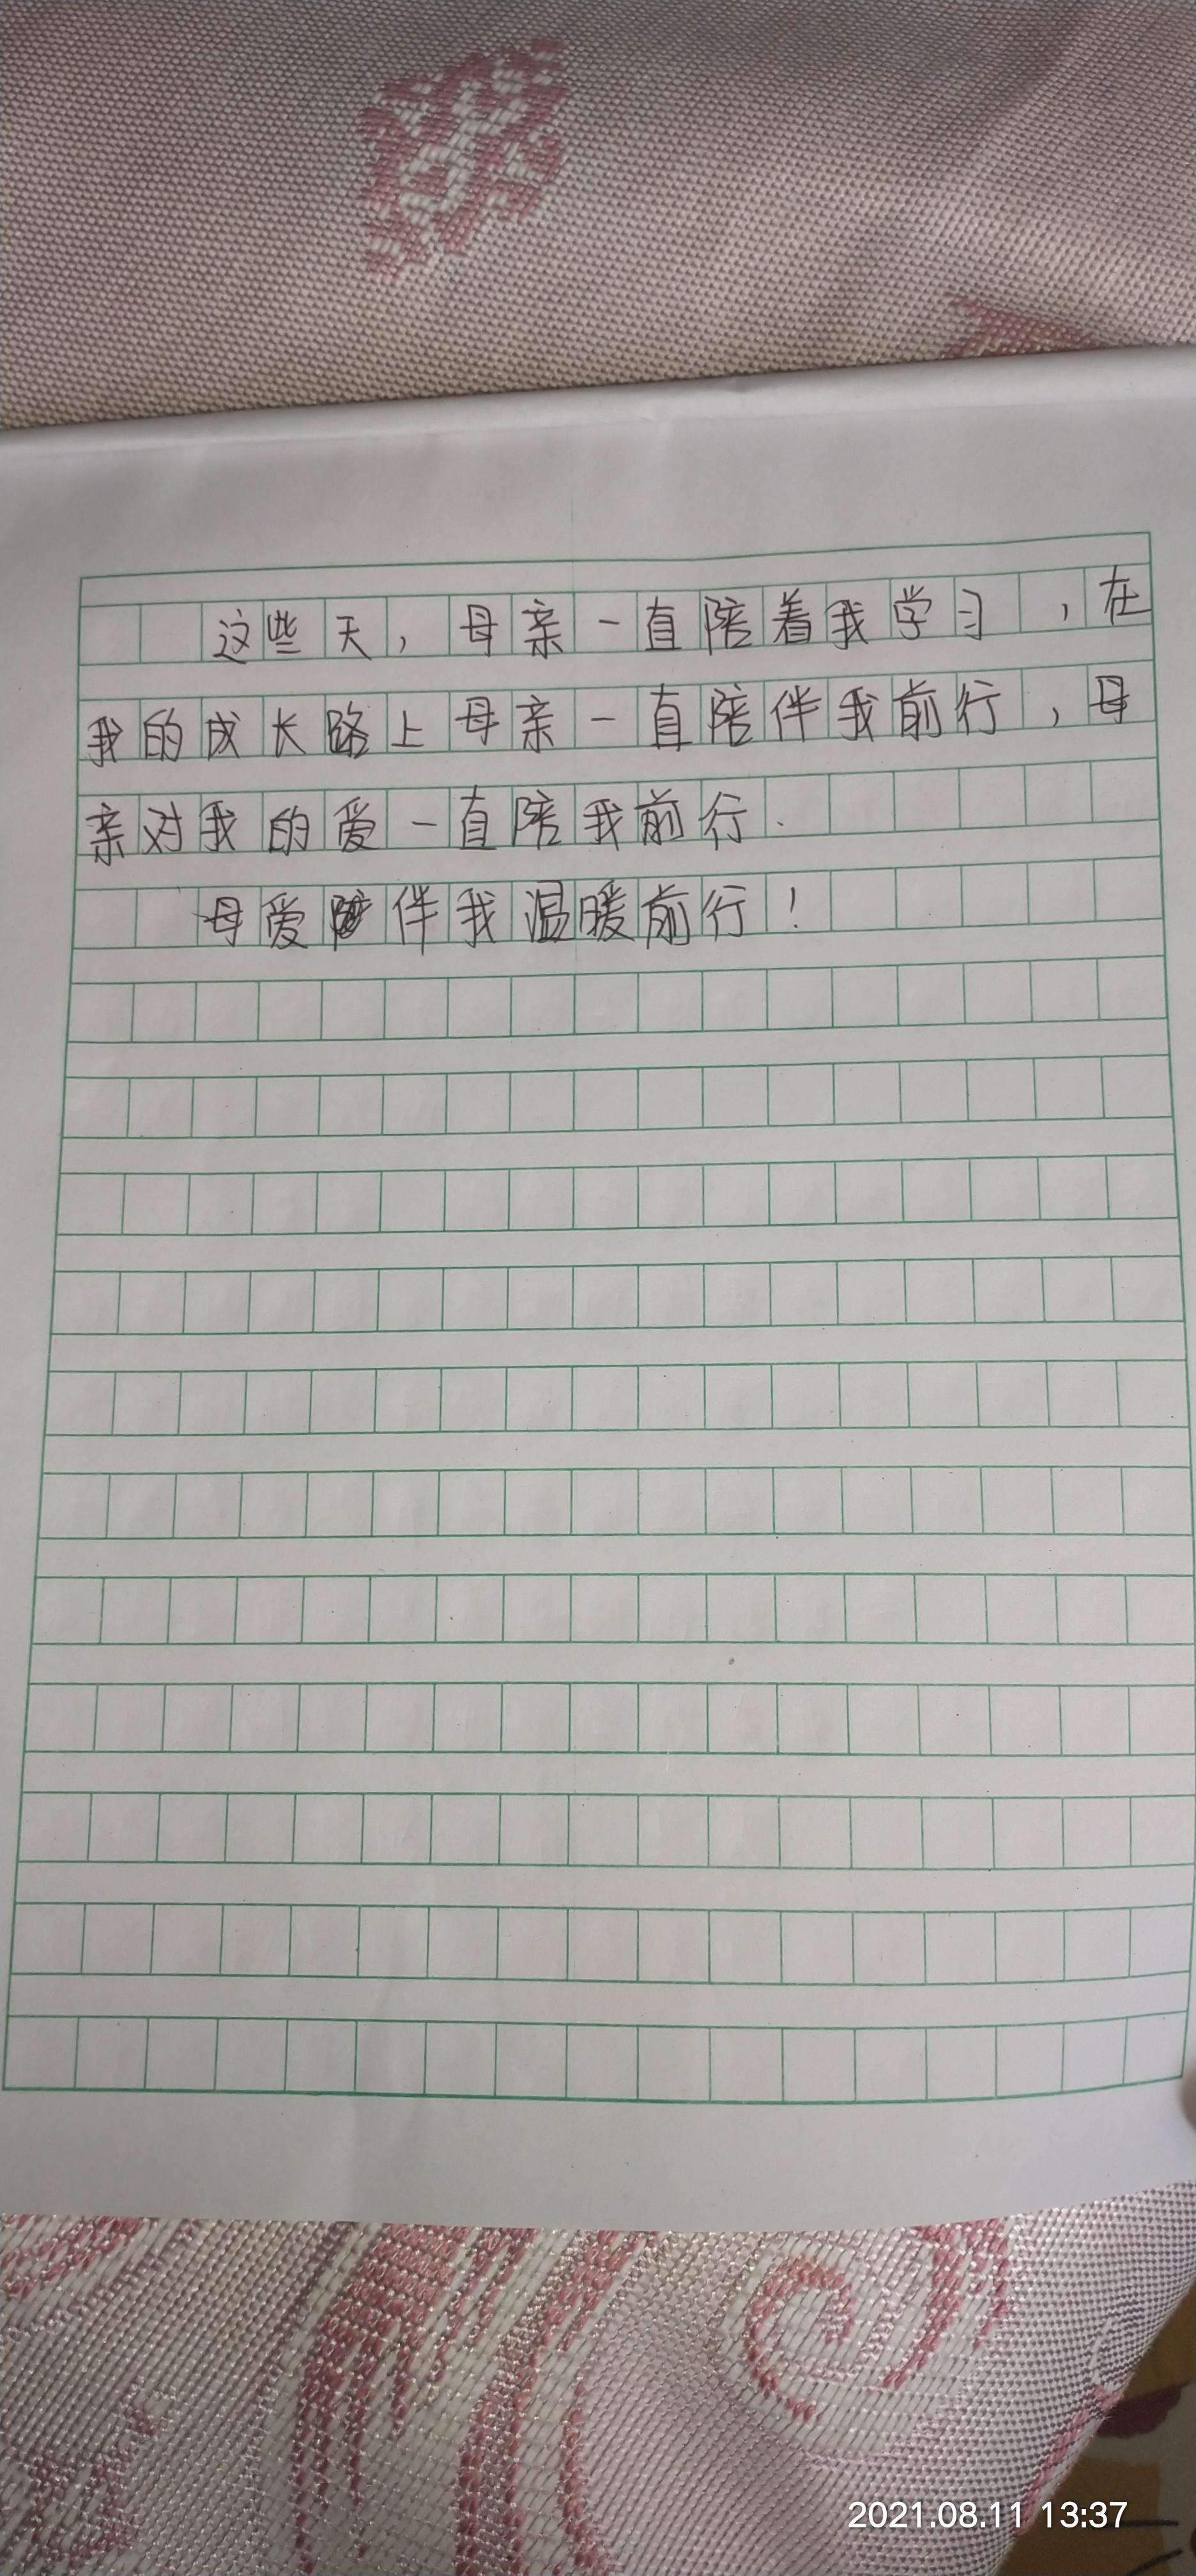 这些天，母亲一直陪着我学习，在
我的成长路上母亲一直陪伴我前行，母
亲对我的爱一直陪我前行.
母爱陪伴我温暖前行！
2021.08.11 13:37